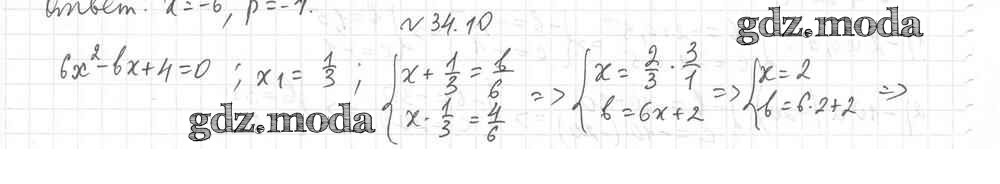 Ответ: α=-6, p=-7.
№ 34.10
gdz.moda
6x²-bx+4=0 ; x₁ = 1/3 ; { x + 1/3 = b/6 => { x = 2/3 · 3/1 => { x = 2 =>
x · 1/3 = 4/6 b = 6x + 2 b = 6·2+2
gdz.moda